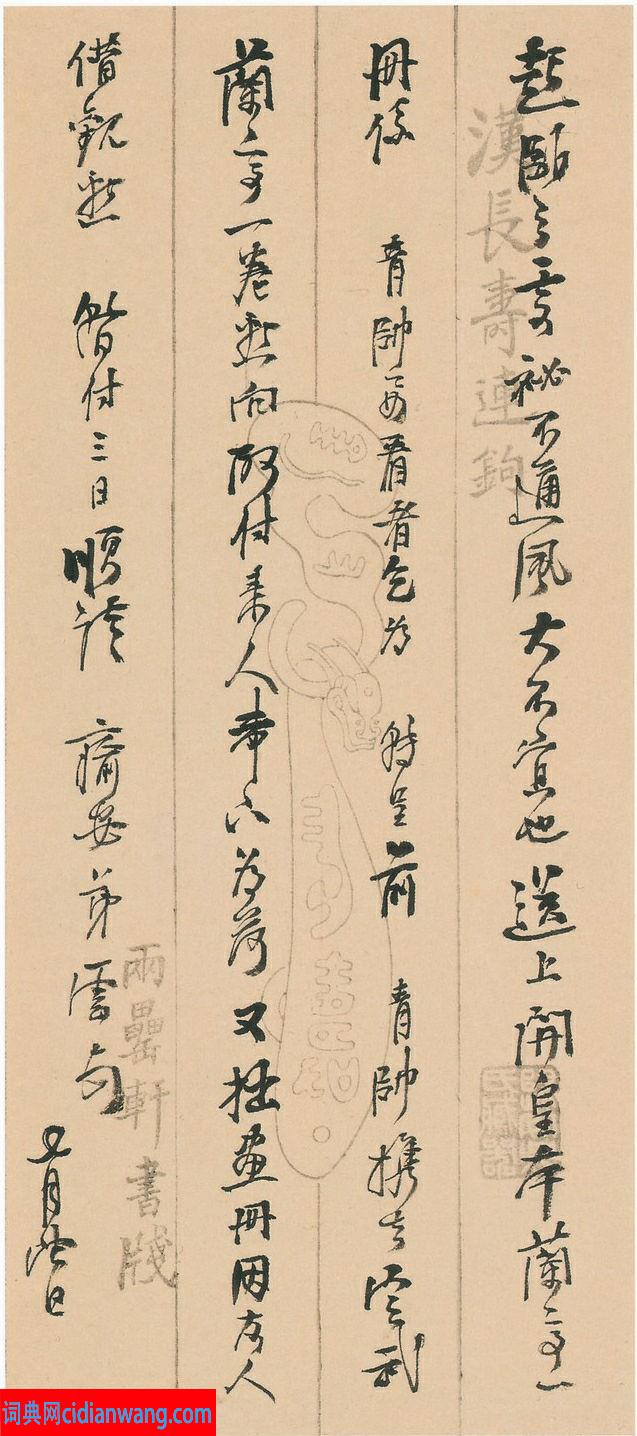 漢長壽連鉤
起臥之室祕不通風大不宜也送上開皇本蘭亭一
冊係 青帥要看者乞為 轉呈前 青帥攜去定武
蘭亭一卷懇向取付來人帶下為荷又拙畫冊因友人
借觀懇 暫付三日順請 安弟雲
月日
兩罍軒書牋
词典网cidianwang.com